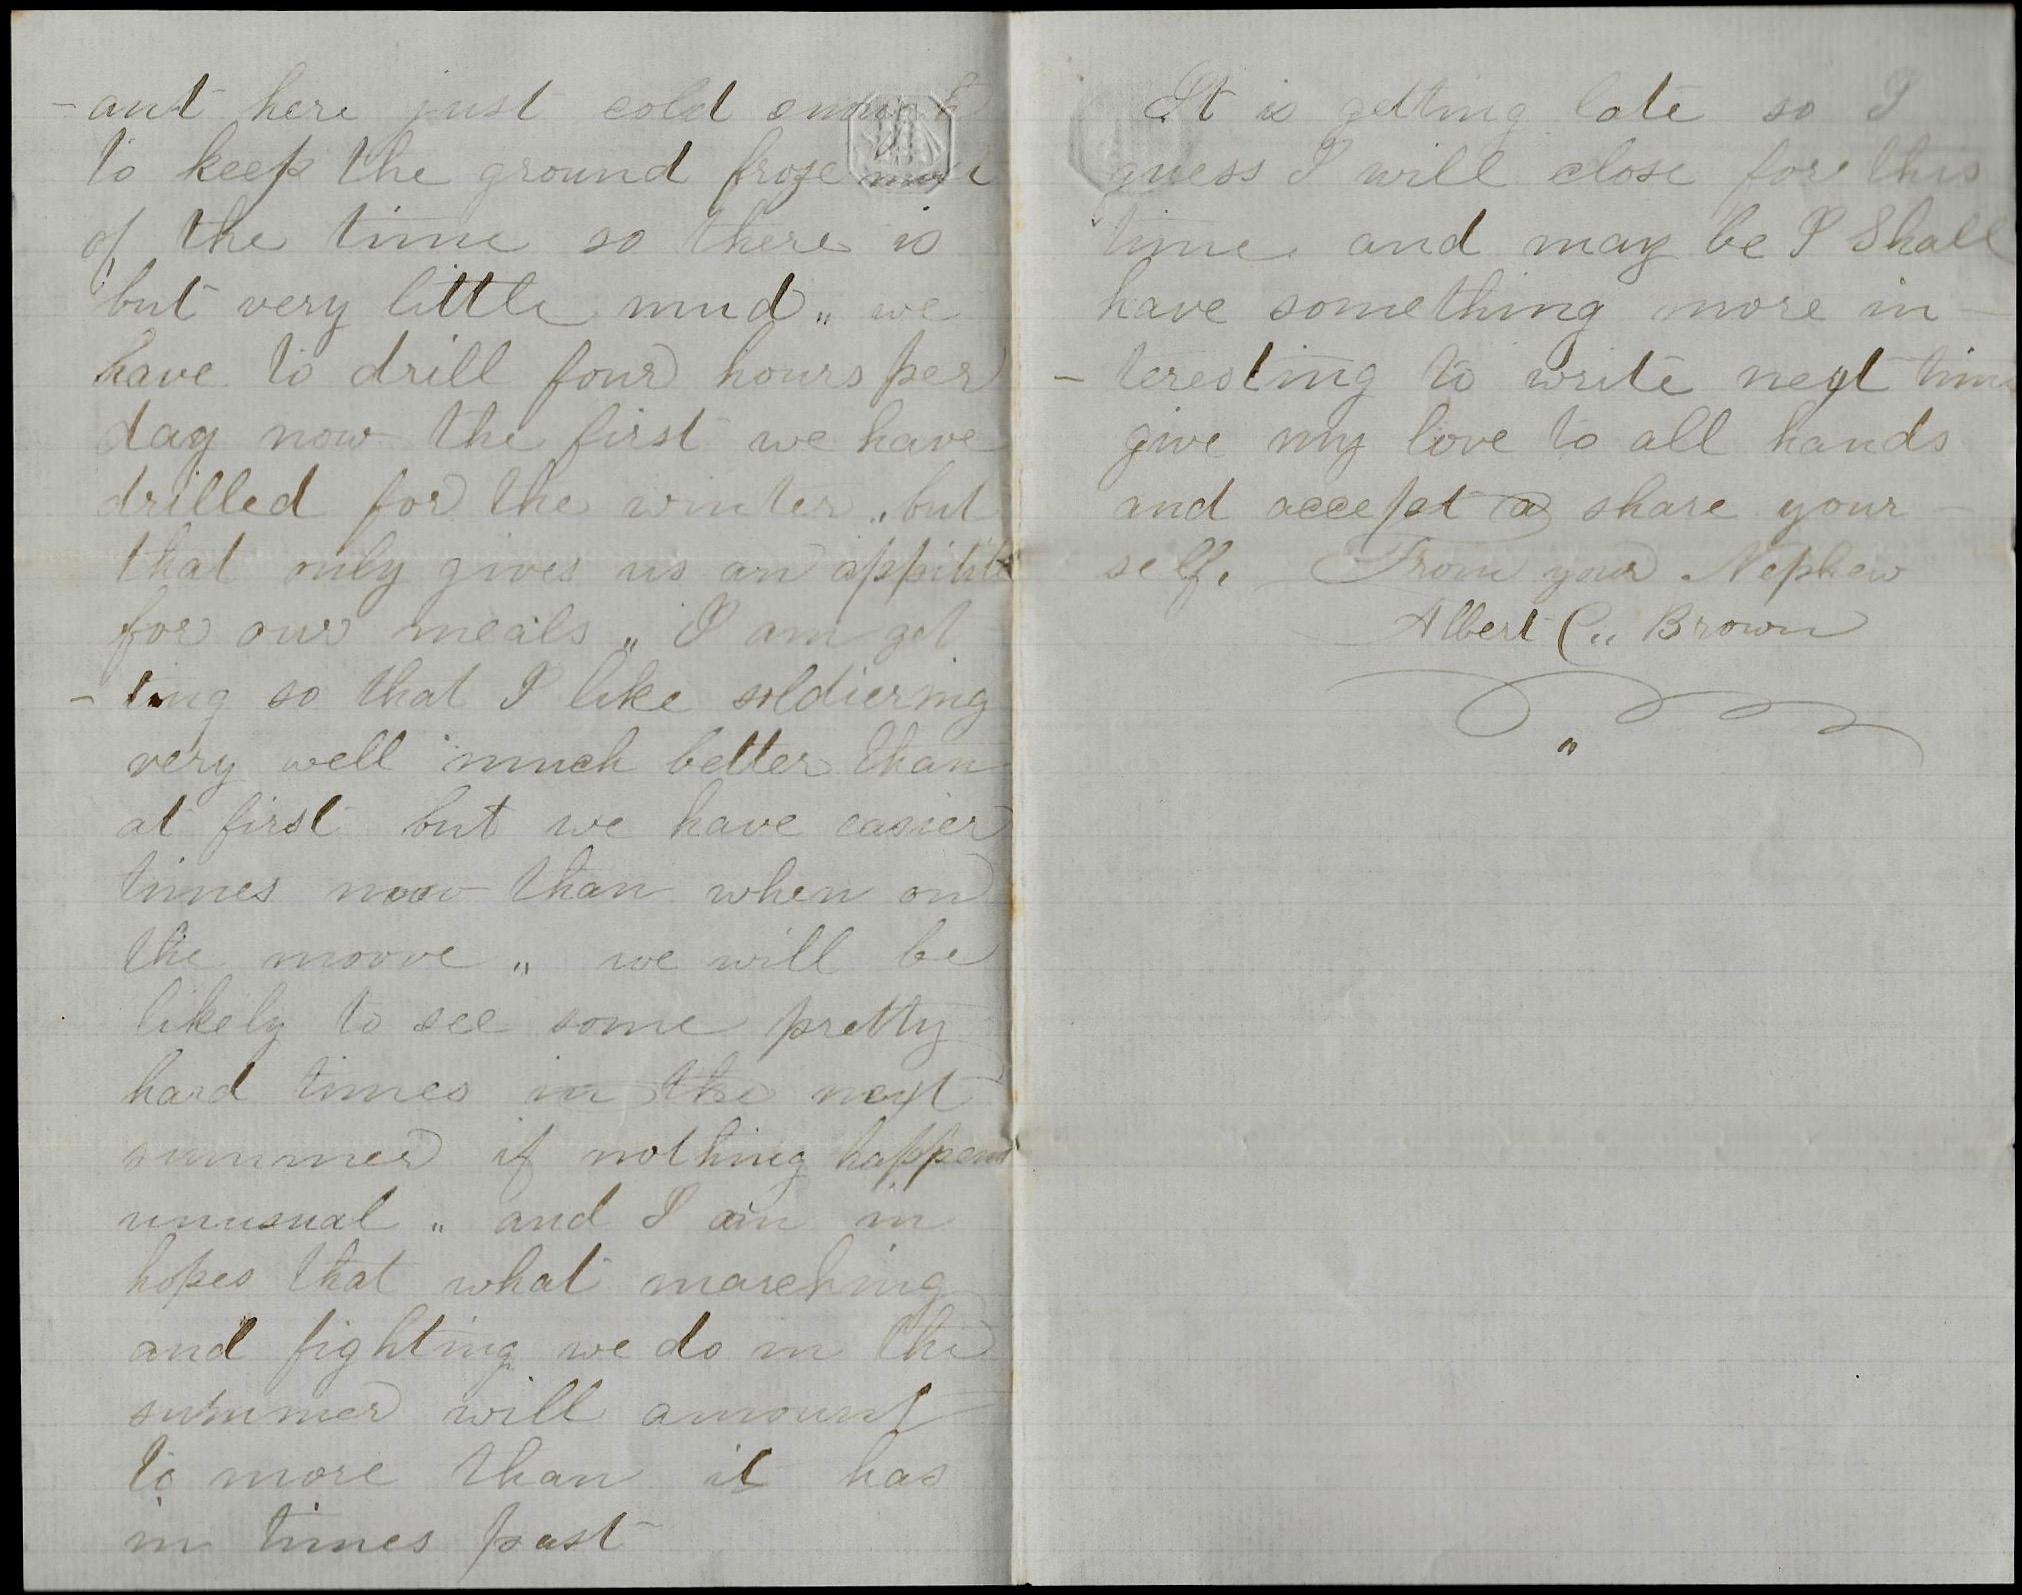 -ant here just cold enough
to keep the ground froze most
of the time so there is
but very little mud „ we
have to drill four hours per
day now the first we have
drilled for the winter „ but
that only gives us an appitite
for our meals „ I am get
- ting so that I like soldiering
very well much better than
at first but we have easier
times now than when on
the moove „ we will be
likely to see some pretty
hard times in the next
summer if nothing happens
unusual „ and I am in
hopes that what marching
and fighting we do in the
summer will amount
to more than it has
in times past
It is getting late so I
guess I will close for this
time and may be I Shall
have something more in -
- teresting to write next time
give my love to all hands
and accept a share your -
self. From your Nephew
Albert C„ Brown
„